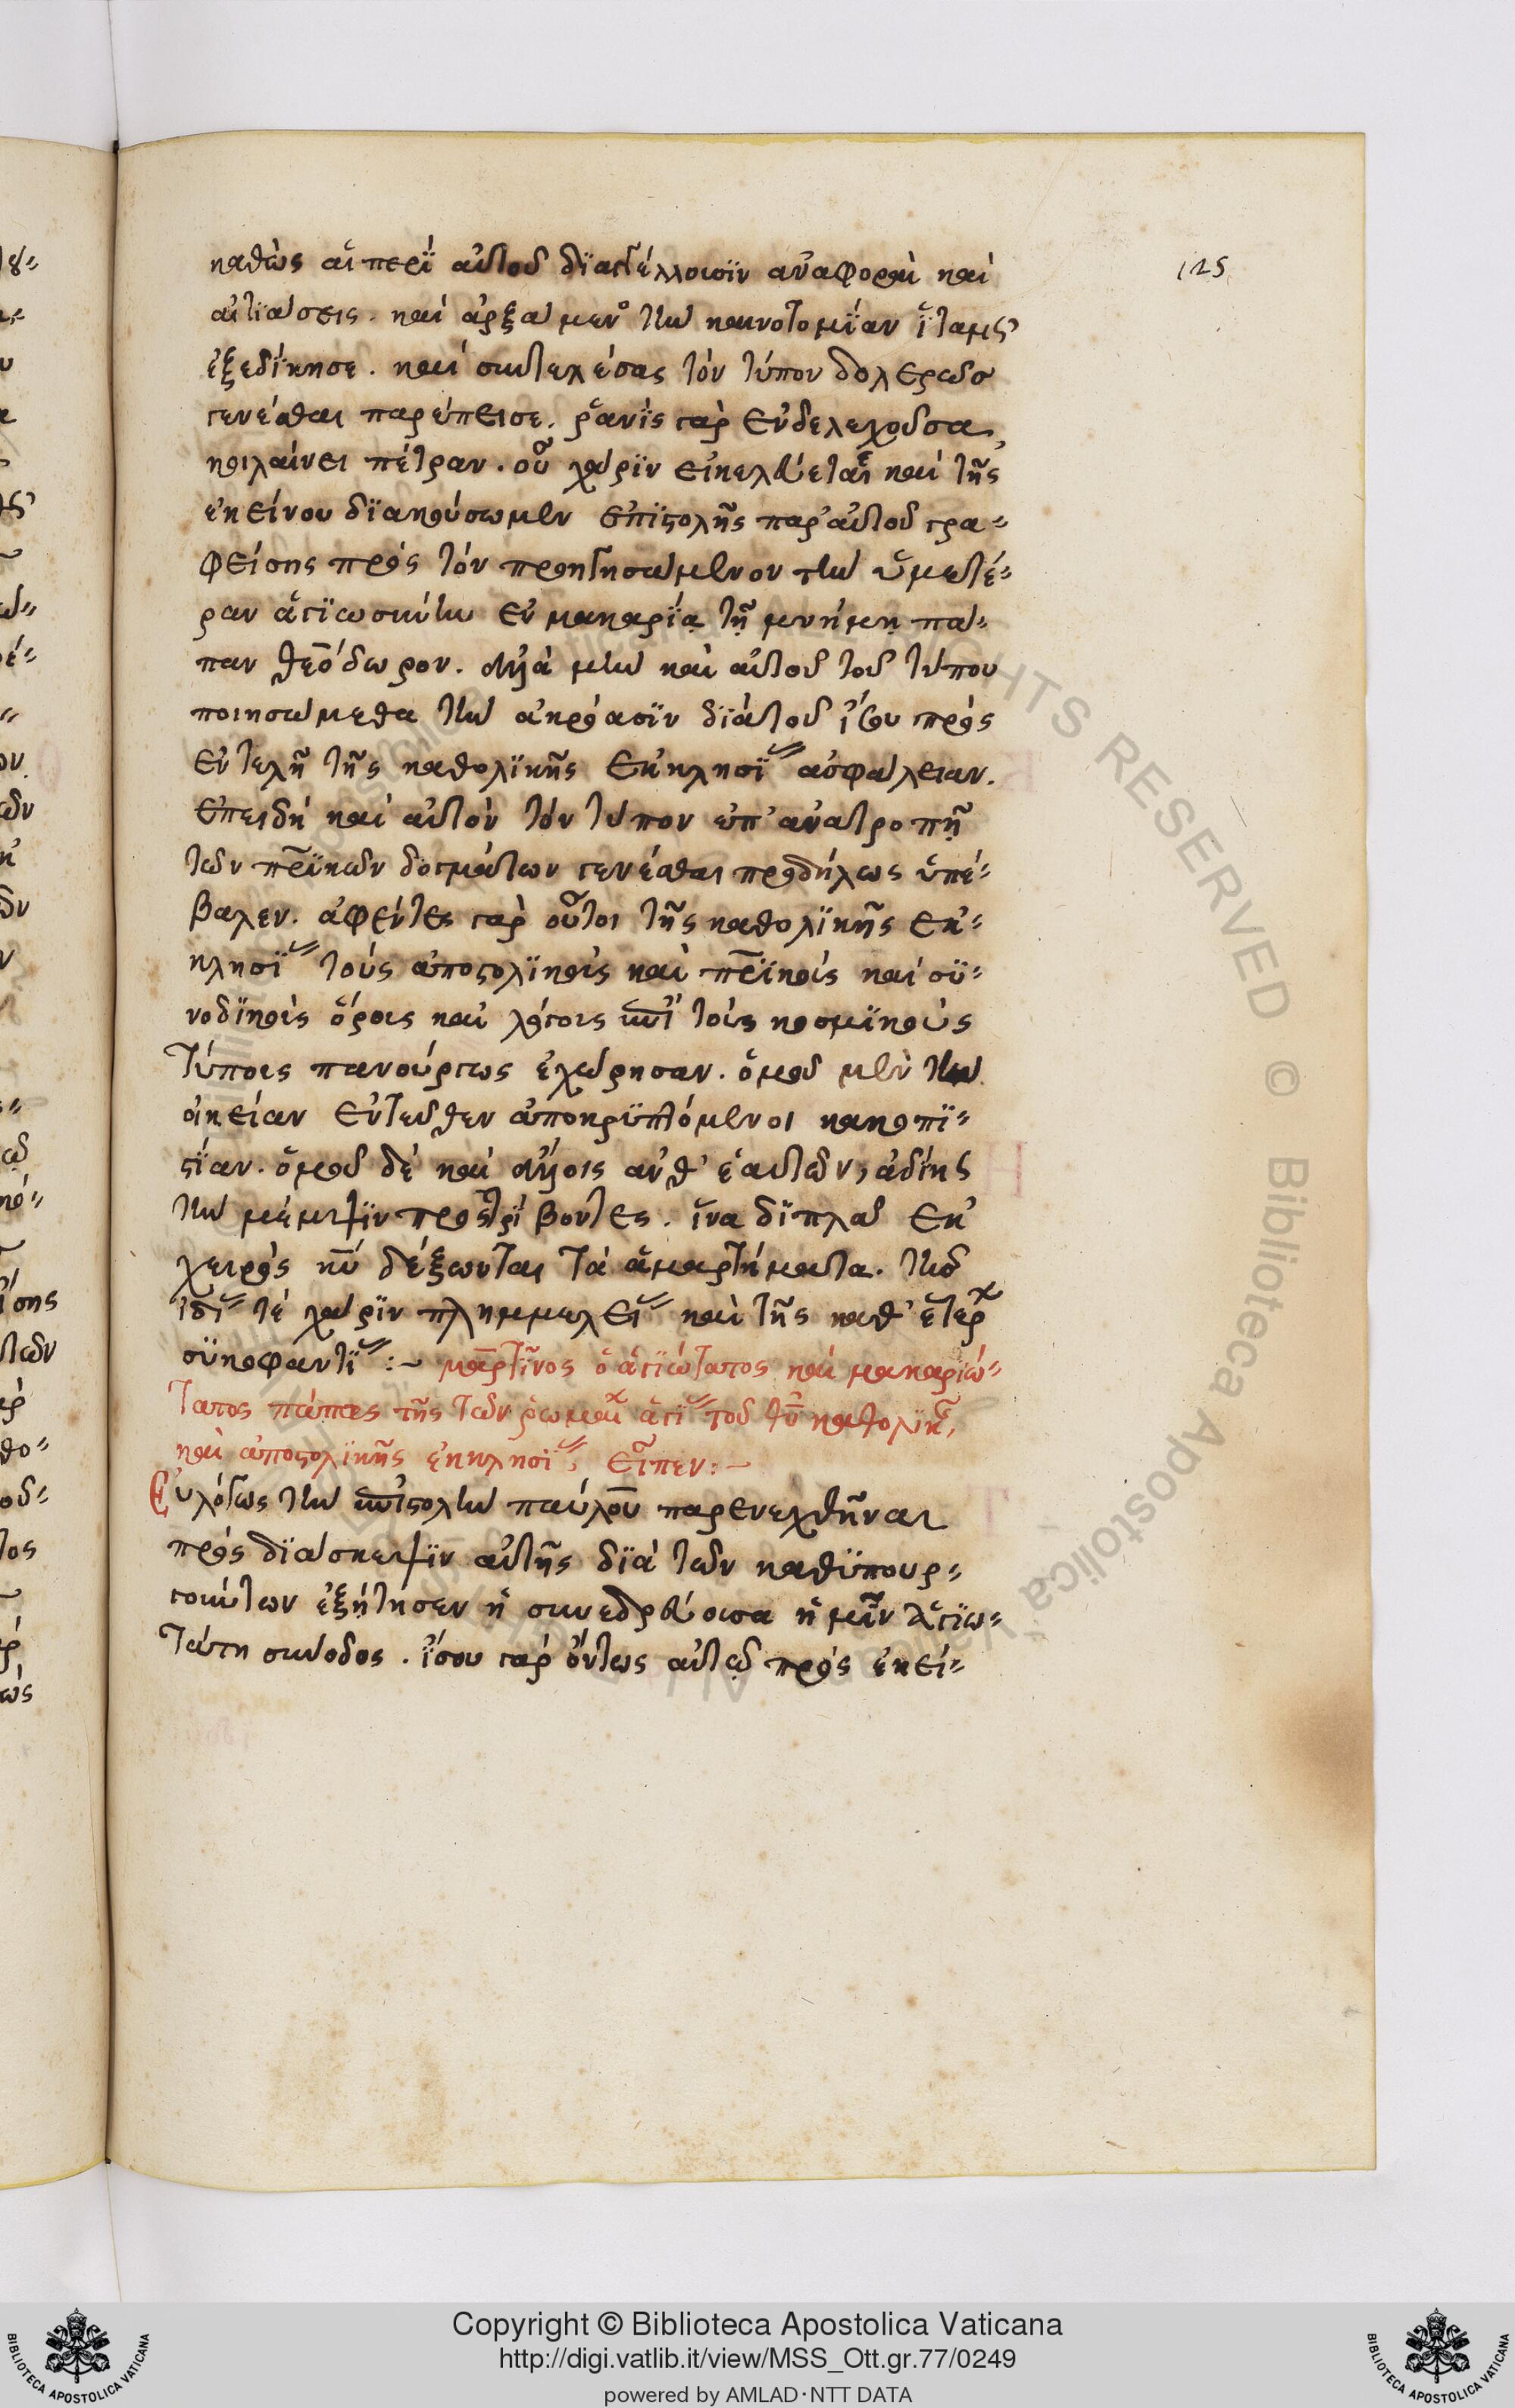 125
καθὼς αἱ περὶ αὐτοῦ διαστέλλουσϊν ἀναφοραὶ καὶ
αἰτϊάσεις. καὶ ἀρξάμενος τὴν καινοτομΐαν ἰταμῶς
ἐξεδΐκησε. καὶ συντελέσας τὸν τύπον δολερῶς
γενέσθαι παρέπεισε. ῥανὶς γὰρ ἐνδελεχοῦσα
κοιλαίνει πέτραν. οὗ χάρϊν εἰ κελεύετε καὶ τῆς
ἐκείνου διακούσωμεν ἐπϊστολῆς παρ' αὐτοῦ γρα-
φείσης πρὸς τὸν προηγησάμενον τὴν ὑμετέ-
ραν ἁγϊωσύνην ἐν μακαρΐᾳ τῇ μνήμῃ πά-
παν θεόδωρον. ἀλλὰ μὴν καὶ αὐτοῦ τοῦ τύπου
ποιησώμεθα τὴν ἀκρόασϊν διὰ τοῦ ἴσου πρὸς
ἐντελῆ τῆς καθολϊκῆς ἐκκλησΐας ἀσφάλειαν.
ἐπειδὴ καὶ αὐτὸν τὸν τύπον ἐπ' ἀνατροπῇ
τῶν πρϊκῶν δογμάτων γενέσθαι προδήλως ὑπέ-
βαλεν. ἀφέντες γὰρ οὗτοι τῆς καθολϊκῆς ἐκ-
κλησΐας τοὺς ἀποστολϊκοὺς καὶ πρϊκοὺς καὶ συ-
νοδϊκοὺς ὅρους καὶ λόγους ἐπὶ τοὺς κοσμϊκοὺς
τύπους πανούργως ἐχώρησαν. ὁμοῦ μὲν τὴν
οἰκείαν ἐντεῦθεν ἀποκρϋπτόμενοι κακοπϊ-
στΐαν. ὁμοῦ δὲ καὶ ἄλλοις ἀνθ' ἑαυτῶν, ἀδίκως
τὴν μέμψϊν προστρΐβοντες. ἵνα διπλᾶ ἐκ
χειρὸς κυ δέξωνται τὰ ἁμαρτήματα. τῆς
ἰδΐας τὲ χάρϊν πλημμελείας καὶ τῆς καθ' ἑτέρων
συκοφαντΐας :~ μαρτῖνος ὁ ἁγϊώτατος καὶ μακαριώ-
τατος πάπας τῆς τῶν ῥωμαίων ἁγΐας τοῦ θυ καθολϊκῆς,
καὶ ἀποστολϊκῆς ἐκκλησΐας, εἶπεν:~
Εὐλόγως τὴν ἐπιστολὴν παύλου παρενεχθῆναι
πρὸς διάσκεψϊν αὐτῆς διὰ τῶν καθϋπουρ-
γούντων ἐξήτησεν ἡ συνεδρεύουσα ἡμῖν ἁγϊω-
τάτη σύνοδος. ἴσου γὰρ ὄντως αὐτῷ πρὸς ἐκεί-
RIGHTS RESERVED © Biblioteca Apostolica Vaticana
Copyright © Biblioteca Apostolica Vaticana
http://digi.vatlib.it/view/MSS_Ott.gr.77/0249
powered by AMLAD·NTT DATA
BIBLIOTECA APOSTOLICA VATICANA
BIBLIOTECA APOSTOLICA VATICANA